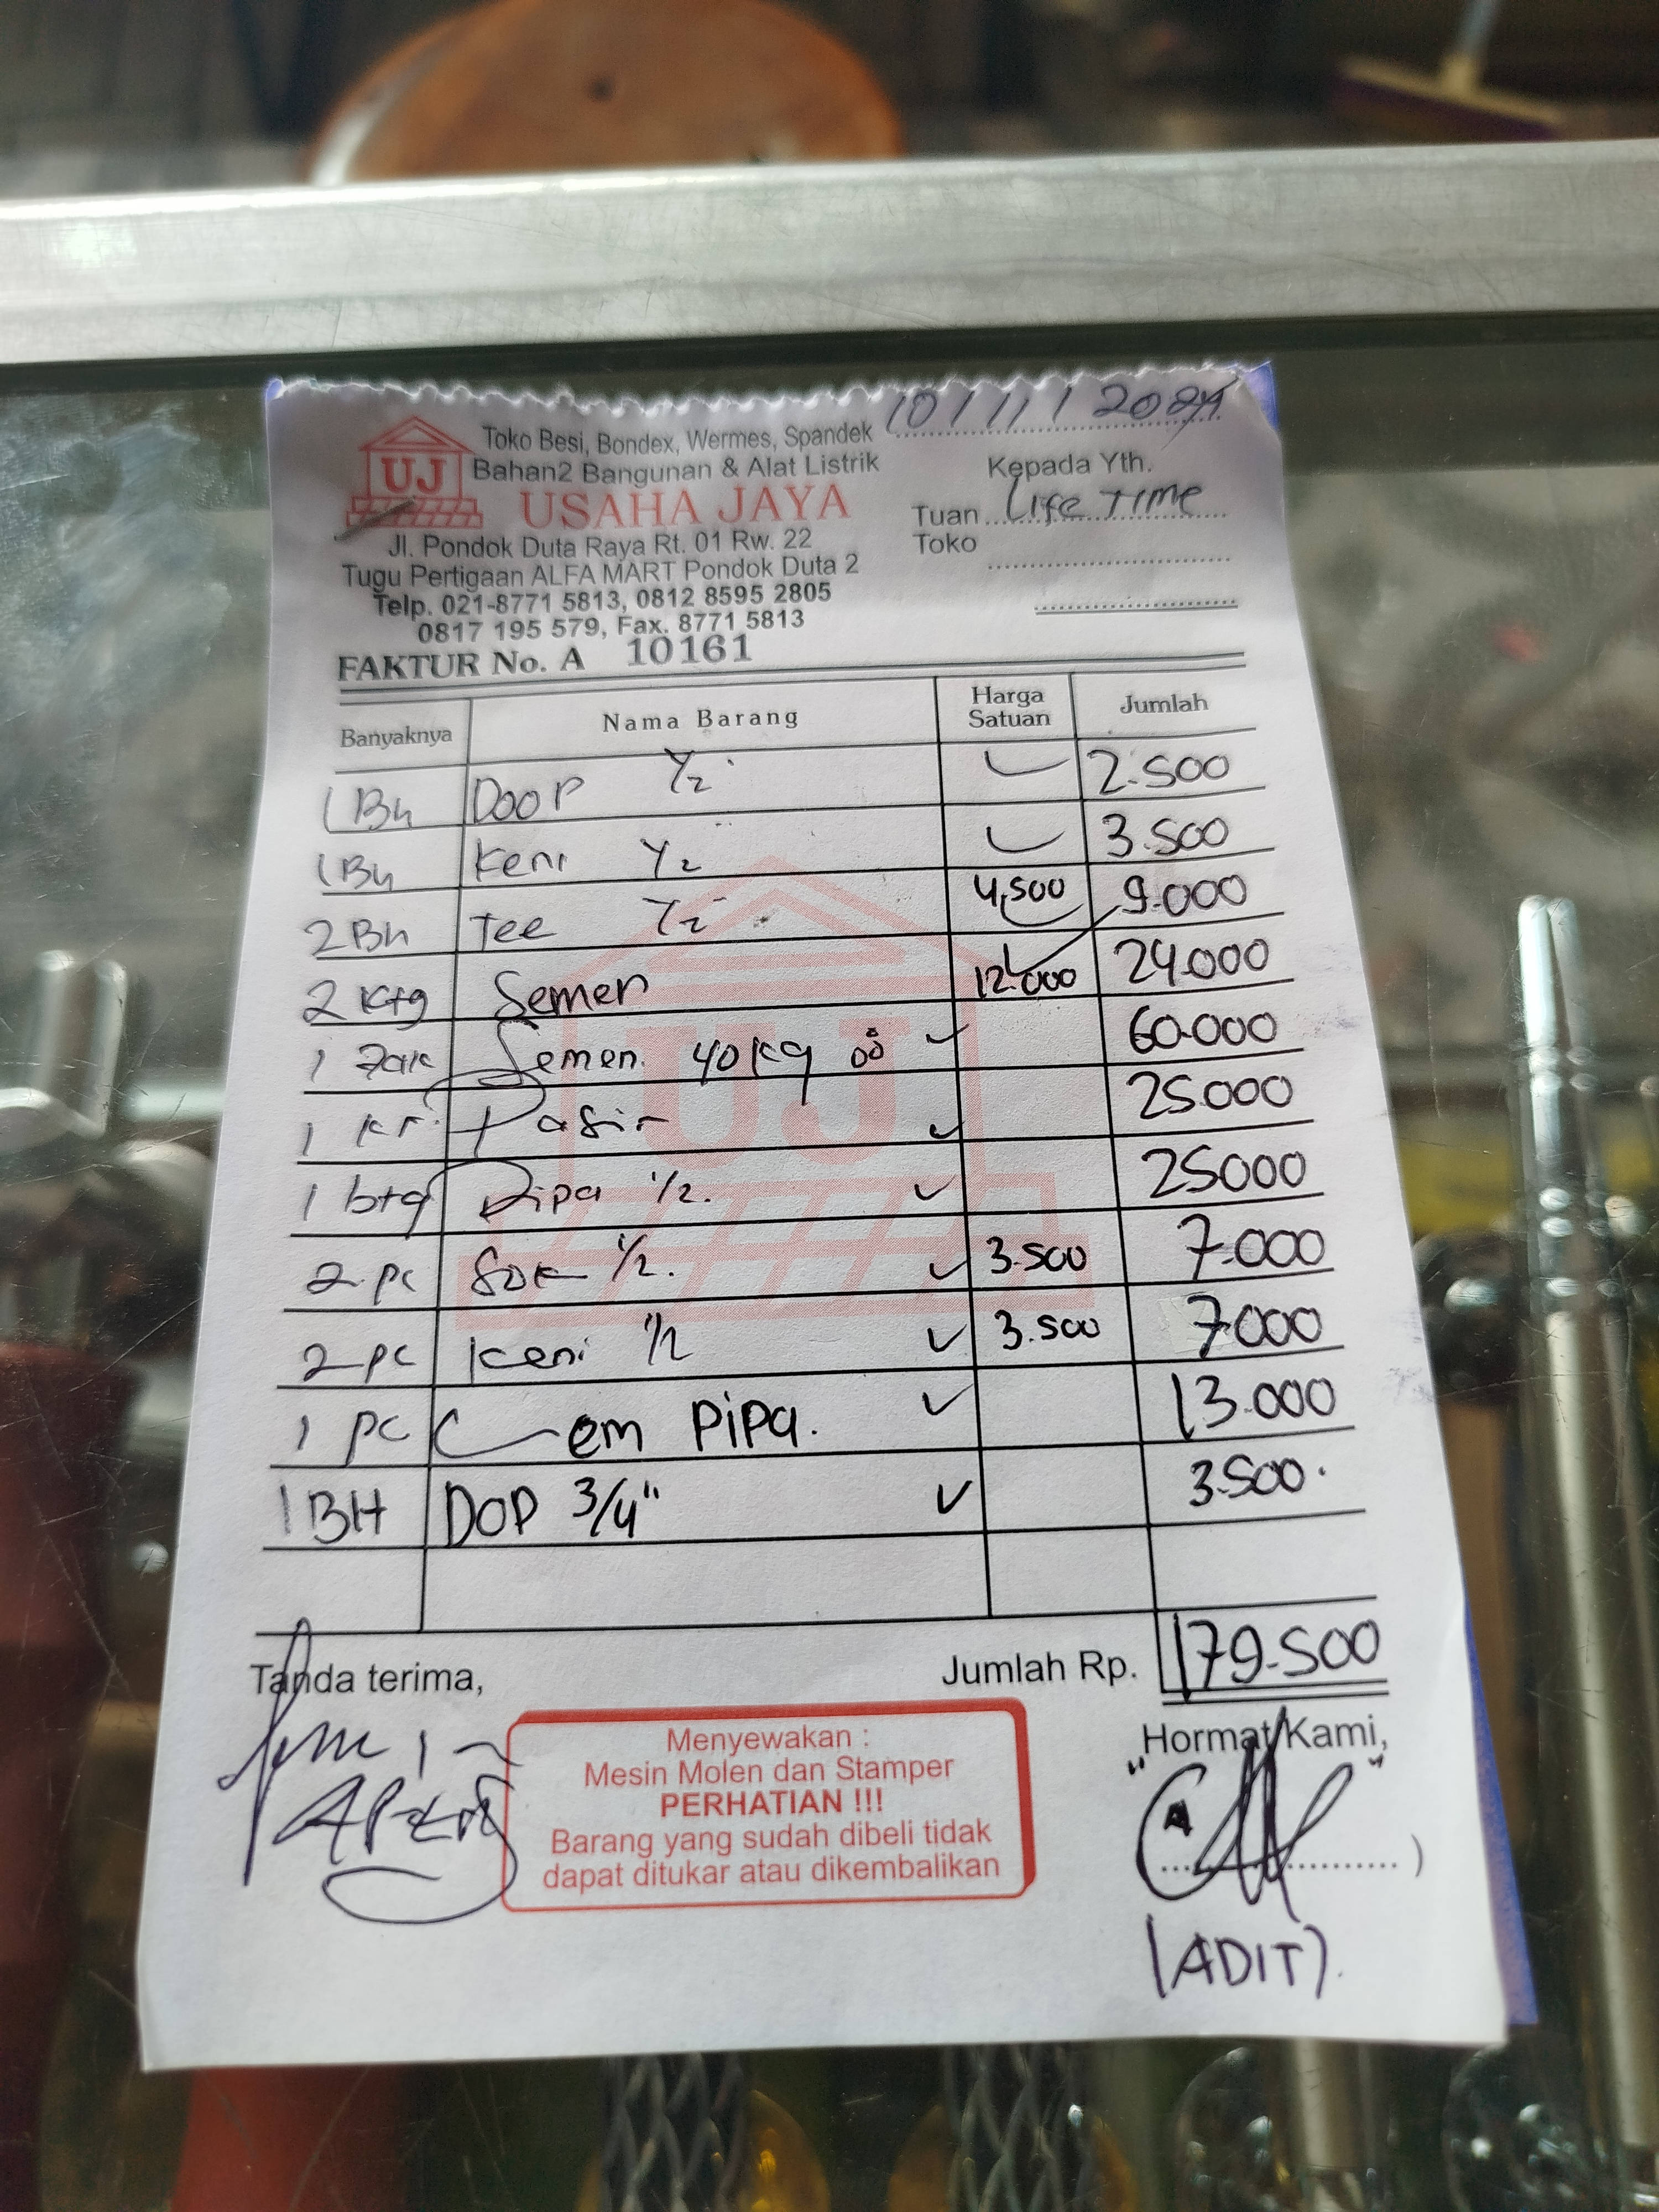 10/11/2024
Toko Besi, Bondex, Wermes, Spandek
Bahan2 Bangunan & Alat Listrik
UJ
USAHA JAYA
Jl. Pondok Duta Raya Rt. 01 Rw. 22
Tugu Pertigaan ALFA MART Pondok Duta 2
Telp. 021-8771 5813, 0812 8595 2805
0817 195 579, Fax. 8771 5813
Kepada Yth.
Tuan Life Time
Toko
FAKTUR No. A 10161
Banyaknya Nama Barang Harga Satuan Jumlah
1 Bh Doop 1/2" 2.500
1 Bh Keni 1/2 3.500
2 Bh Tee 1/2" 4.500 9.000
2 Ktg Semen 12.000 24.000
1 Zak Semen 40 kg 60.000
1 Kr Pasir 25.000
1 btg Pipa 1/2. 25000
2 pc Sok 1/2. 3.500 7.000
2 pc Keni 1/2 3.500 7.000
1 pc Lem Pipa. 13.000
1 BH DOP 3/4" 3.500
Jumlah Rp. 179.500
Tanda terima,
Hormat Kami,
Menyewakan :
Mesin Molen dan Stamper
PERHATIAN !!!
Barang yang sudah dibeli tidak
dapat ditukar atau dikembalikan
(ADIT).
UJ